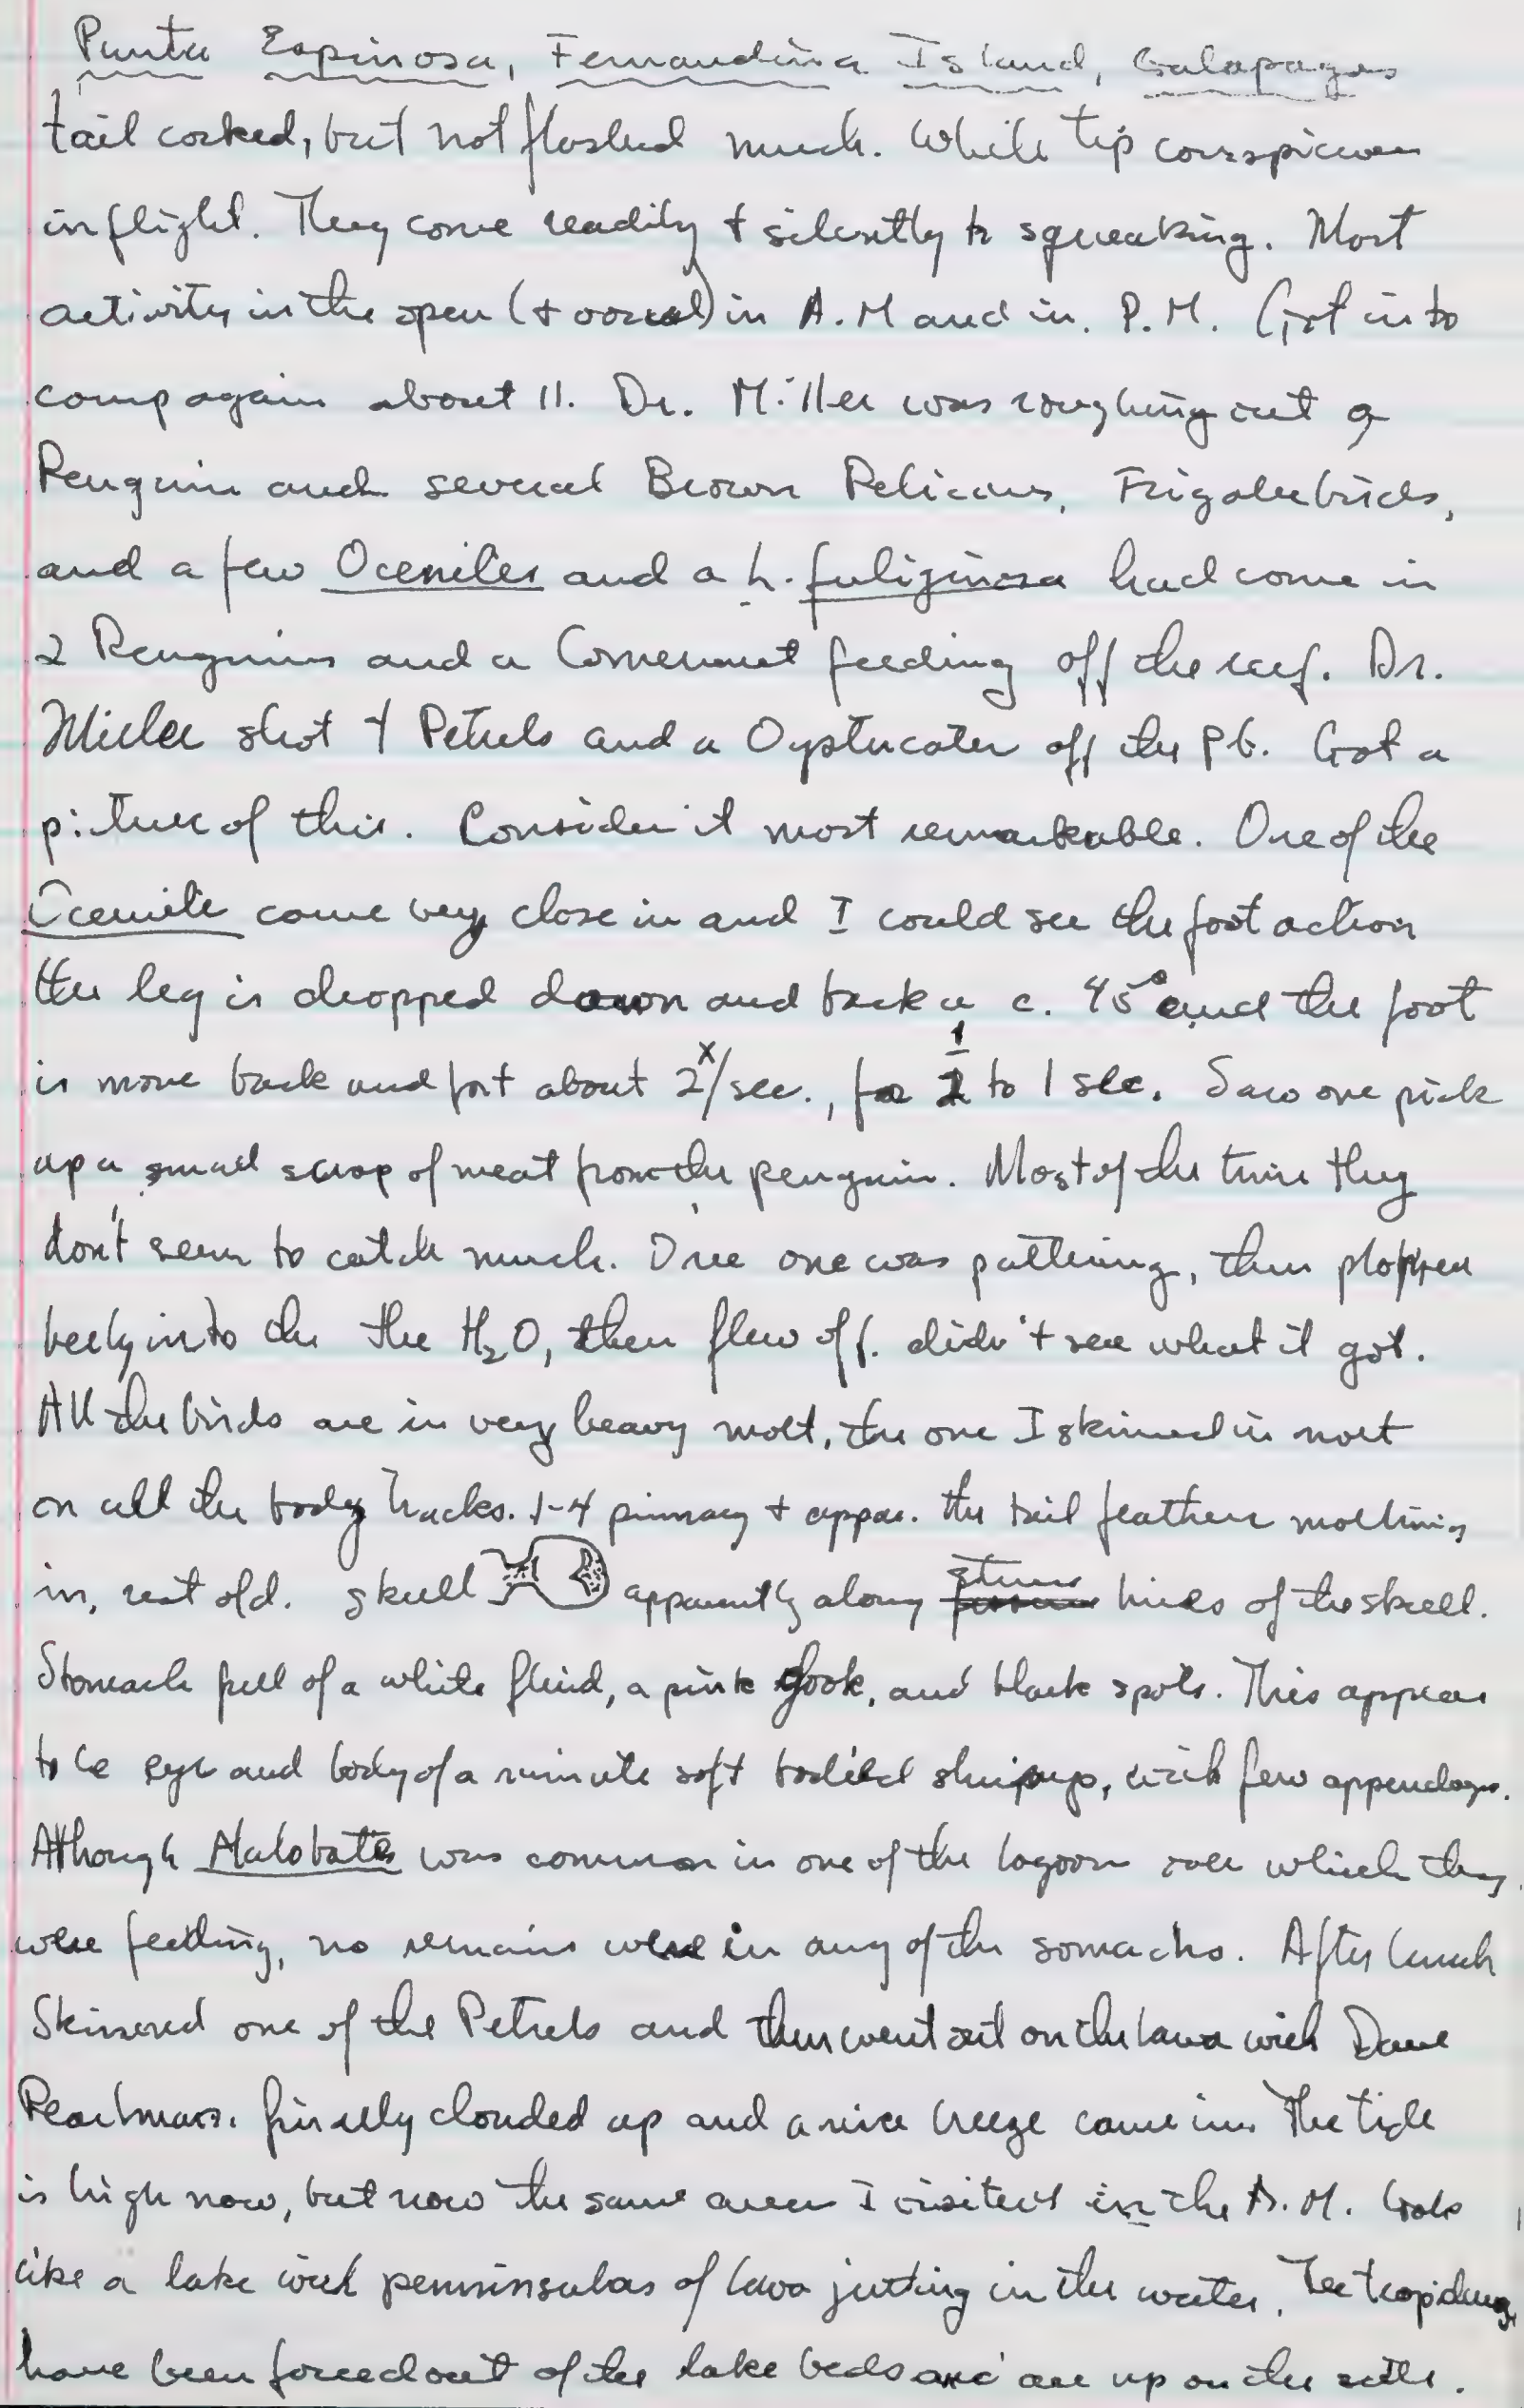 Punta Espinosa, Fernandina Island, Galapagos
tail cocked, but not flashed much. White tip conspicuous
in flight. They come readily + silently to squeaking. Most
activity in the open (+ vocal) in A.M and in. P.M. Got into
camp again about 11. Dr. Miller was roughing out a
Penguin and several Brown Pelicans, Frigatebirds,
and a few Ocenites and a L. fuliginosa had come in
2 Penguins and a Cormorant feeding off the reef. Dr.
Miller shot 4 Petrels and a Oystercater off the Pt. Got a
picture of this. Consider it most remarkable. One of the
Ocenite came very close in and I could see the foot action
the leg is dropped down and back a c. 45° and the foot
is move back and fort about 2x/sec., for 1/2 to 1 sec. Saw one pick
up a small scrap of meat from the penguin. Most of the time they
don't seem to catch much. One was pattering, then plopped
belly into the the H2O, then flew off. didn't see what it got.
All the birds are in very heavy molt, the one I skinned in molt
on all the body tracks. 1-4 primary + appar. the tail feathers molting
in, rest old. skull apparently along lines of the skull.
Stomach full of a white fluid, a pink gook, and black spots. This appears
to be eye and body of a minute soft bodied shrimp, with few appendages.
Although Halobates was common in one of the lagoon over which they
were feeding, no remains were in any of the somachs. After lunch
Skinned one of the Petrels and then went out on the lava with Dave
finally clouded up and a nice breeze came in. The tide
is high now, but now the same area I visited in the A.M. looks
like a lake with penninsulas of lava jutting in the water. The
have been forced out of the lake beds and are up on the